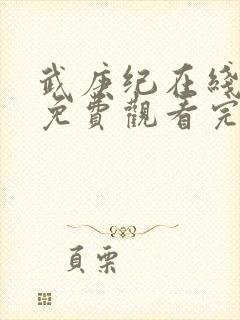 武庚纪在线
免費觀看完
頁栗